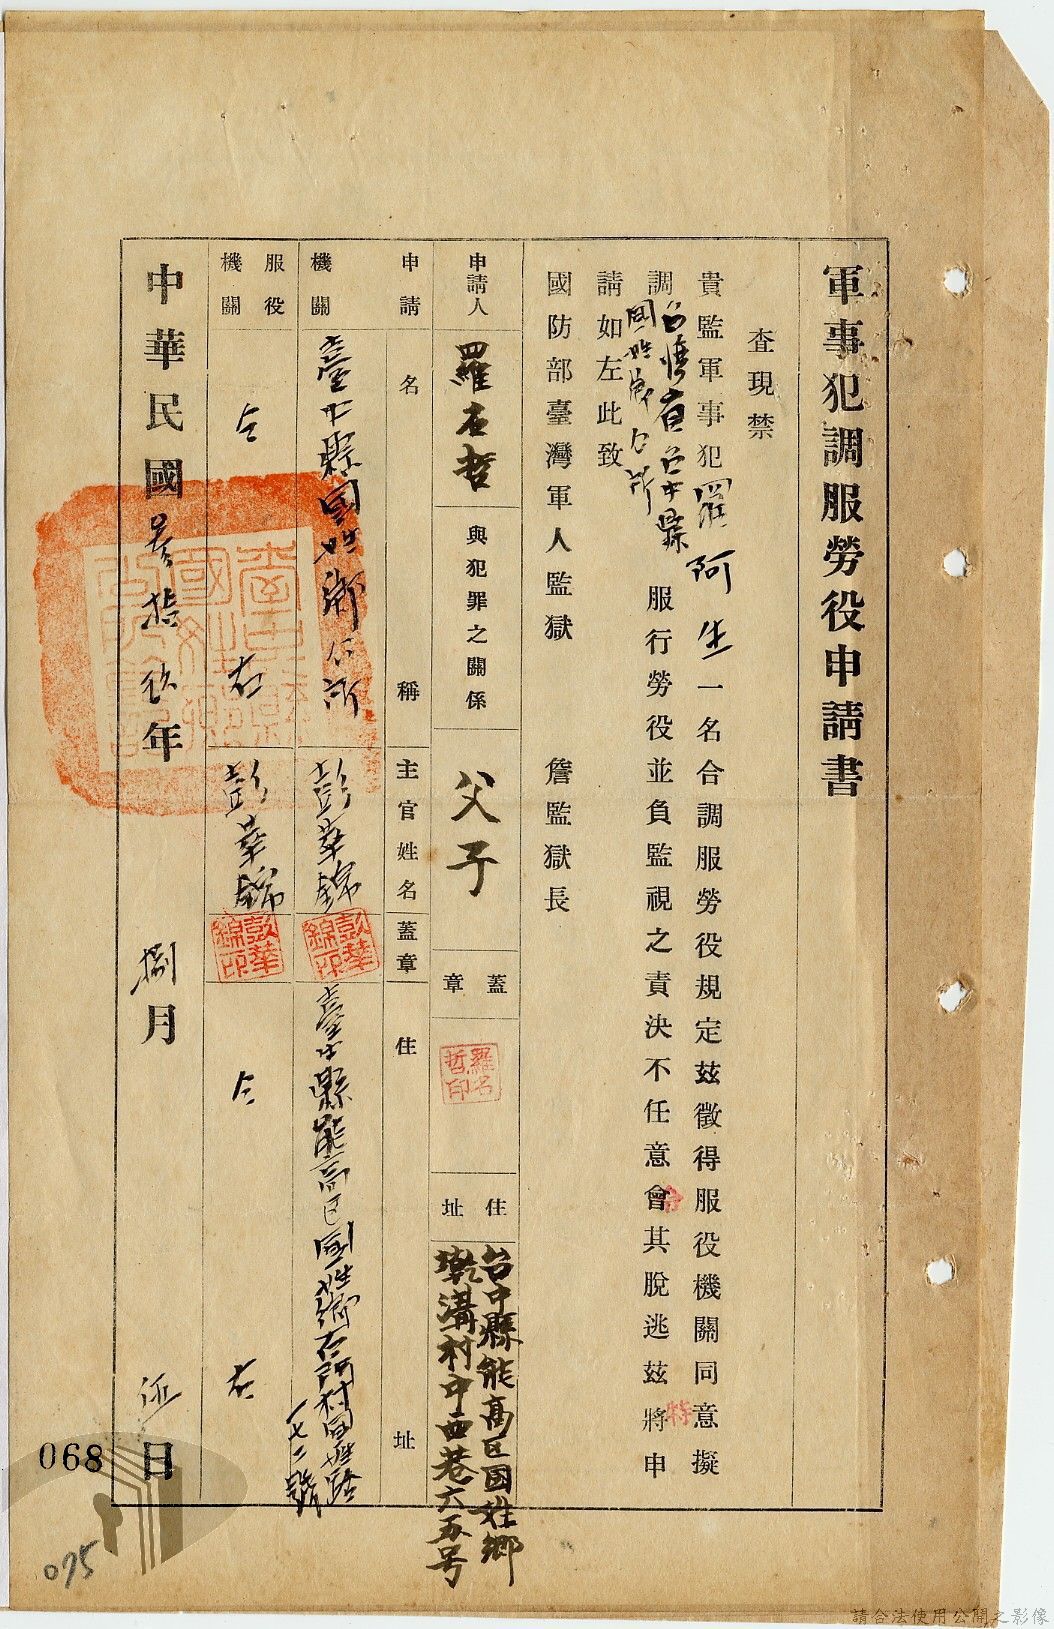 軍事犯調服勞役申請書
查現禁
貴監軍事犯羅阿生一名合調服勞役規定玆徵得服役機關同意擬
調台灣省台中縣國姓鄉公所服行勞役並負監視之責決不任意會其脫逃玆將申
令
特
請如左此致
國防部臺灣軍人監獄 詹監獄長
申請人 羅石哲 與犯罪之關係 父子 蓋章 住址 台中縣能高区國姓鄉
乾溝村中西巷六五号
羅名哲印
申請名稱 主官姓名 蓋章 住址
機關 臺中縣國姓鄉公所 彭華錦 臺中縣能高区國姓鄉石門村國姓路
一七二號
彭華錦印
服役機關 仝右 彭華錦 仝右
彭華錦印
中華民國參拾玖年捌月 日
068
075
請合法使用公開之影像